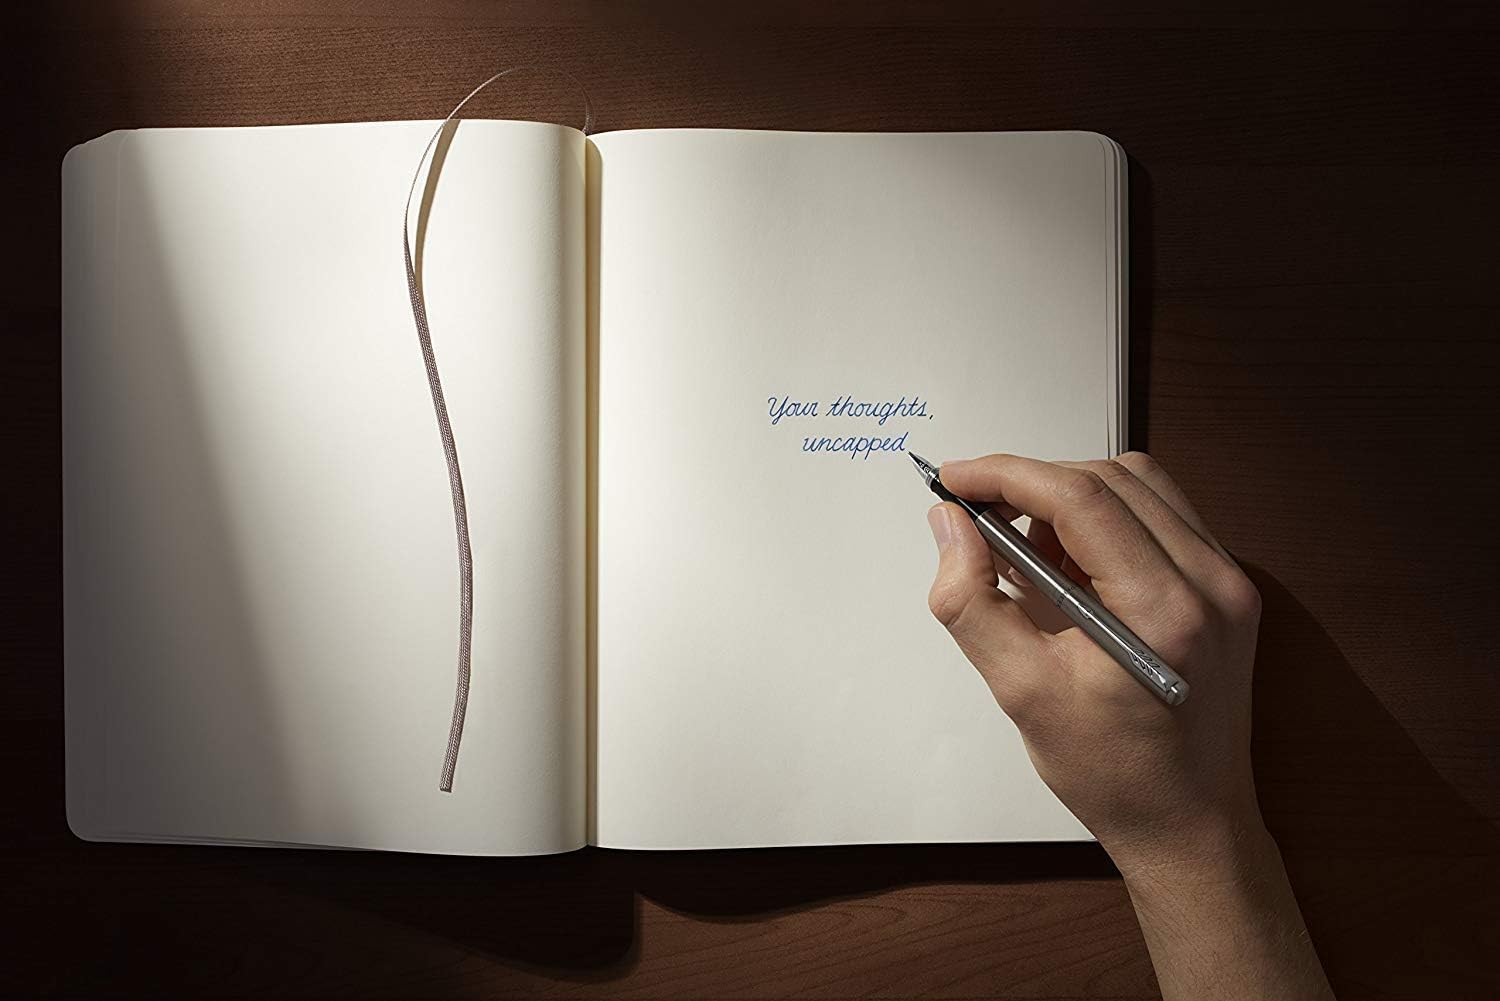 Your thoughts,
uncapped